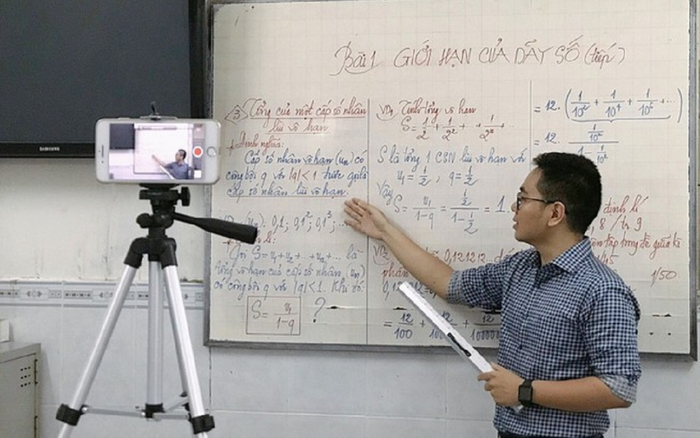 SAMSUNG
Bài 1 GIỚI HẠN CỦA DÃY SỐ (tiếp)
③ Tổng của một cấp số nhân
lùi vô hạn
Định nghĩa:
Cấp số nhân vô hạn (uₙ) có
công bội q với |q| < 1 được gọi là
cấp số nhân lùi vô hạn.
(uₙ): 0,1; 0,1²; 0,1³; ...
Gọi S = u₁ + u₂ + ... + uₙ + ... là
tổng vô hạn của cấp số nhân (uₙ)
có công bội q với |q| < 1. Khi đó:
S = u₁/(1-q) ?
VD₁ Tính tổng vô hạn
S = 1/2 + 1/2² + ... + 1/2ⁿ
S là tổng 1 CSN lùi vô hạn với
u₁ = 1/2, q = 1/2
Vậy
S = u₁/(1-q) = (1/2)/(1-1/2) = 1.
0,121212...
phân
12/100 + 12/
= 12. (1/10² + 1/10⁴ + 1/10⁶ + ...)
= 12.
định lí
8 / 9
1/50